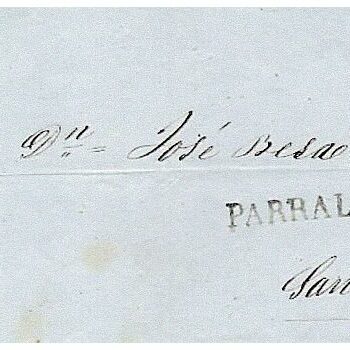 Dn = José Besa
PARRAL
San